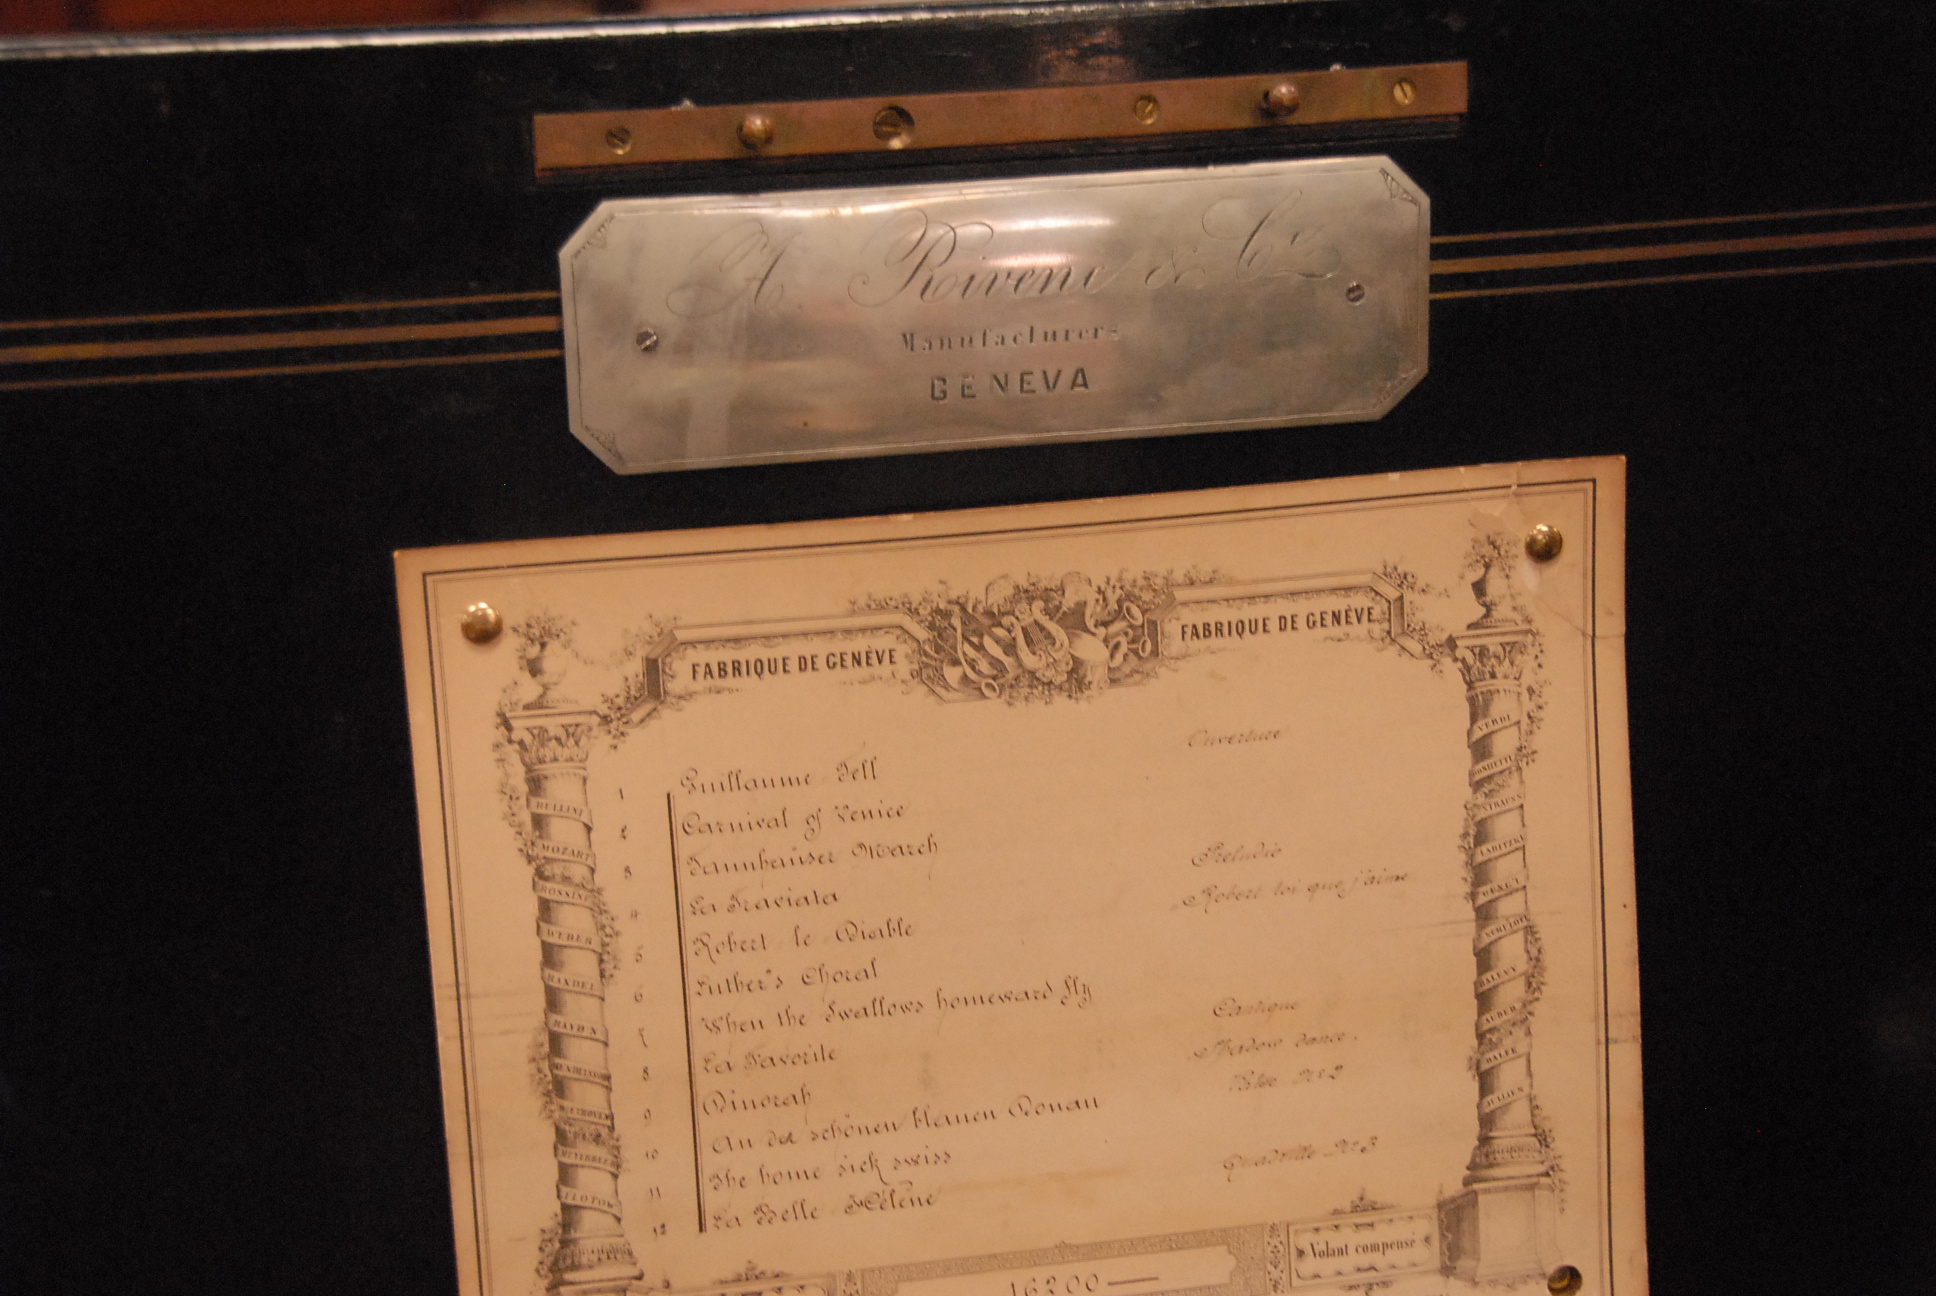 A Rivenc & Cie
Manufacturers
GENEVA
FABRIQUE DE GENÈVE
FABRIQUE DE GENÈVE
1 Guillaume Tell Ouverture
2 Carnival of Venice
3 Tannhauser March
4 La Traviata Preludio
5 Robert le Diable Robert toi que j'aime
6 Luther's Choral
7 When the Swallows homeward fly
8 La Favorite Cantique
9 Dinorah Shadow dance.
10 An der schönen blauen Donau Valse No 2
11 The home sick swiss
12 La Belle Hélène Quadrille No 3
16200
Volant compensé
BELLINI
MOZART
ROSSINI
WEBER
HANDEL
HAYDN
BEETHOVEN
MEYERBEER
FLOTOW
VERDI
DONIZETTI
STRAUSS
LABITZKI
HALEVY
AUBER
BALFE